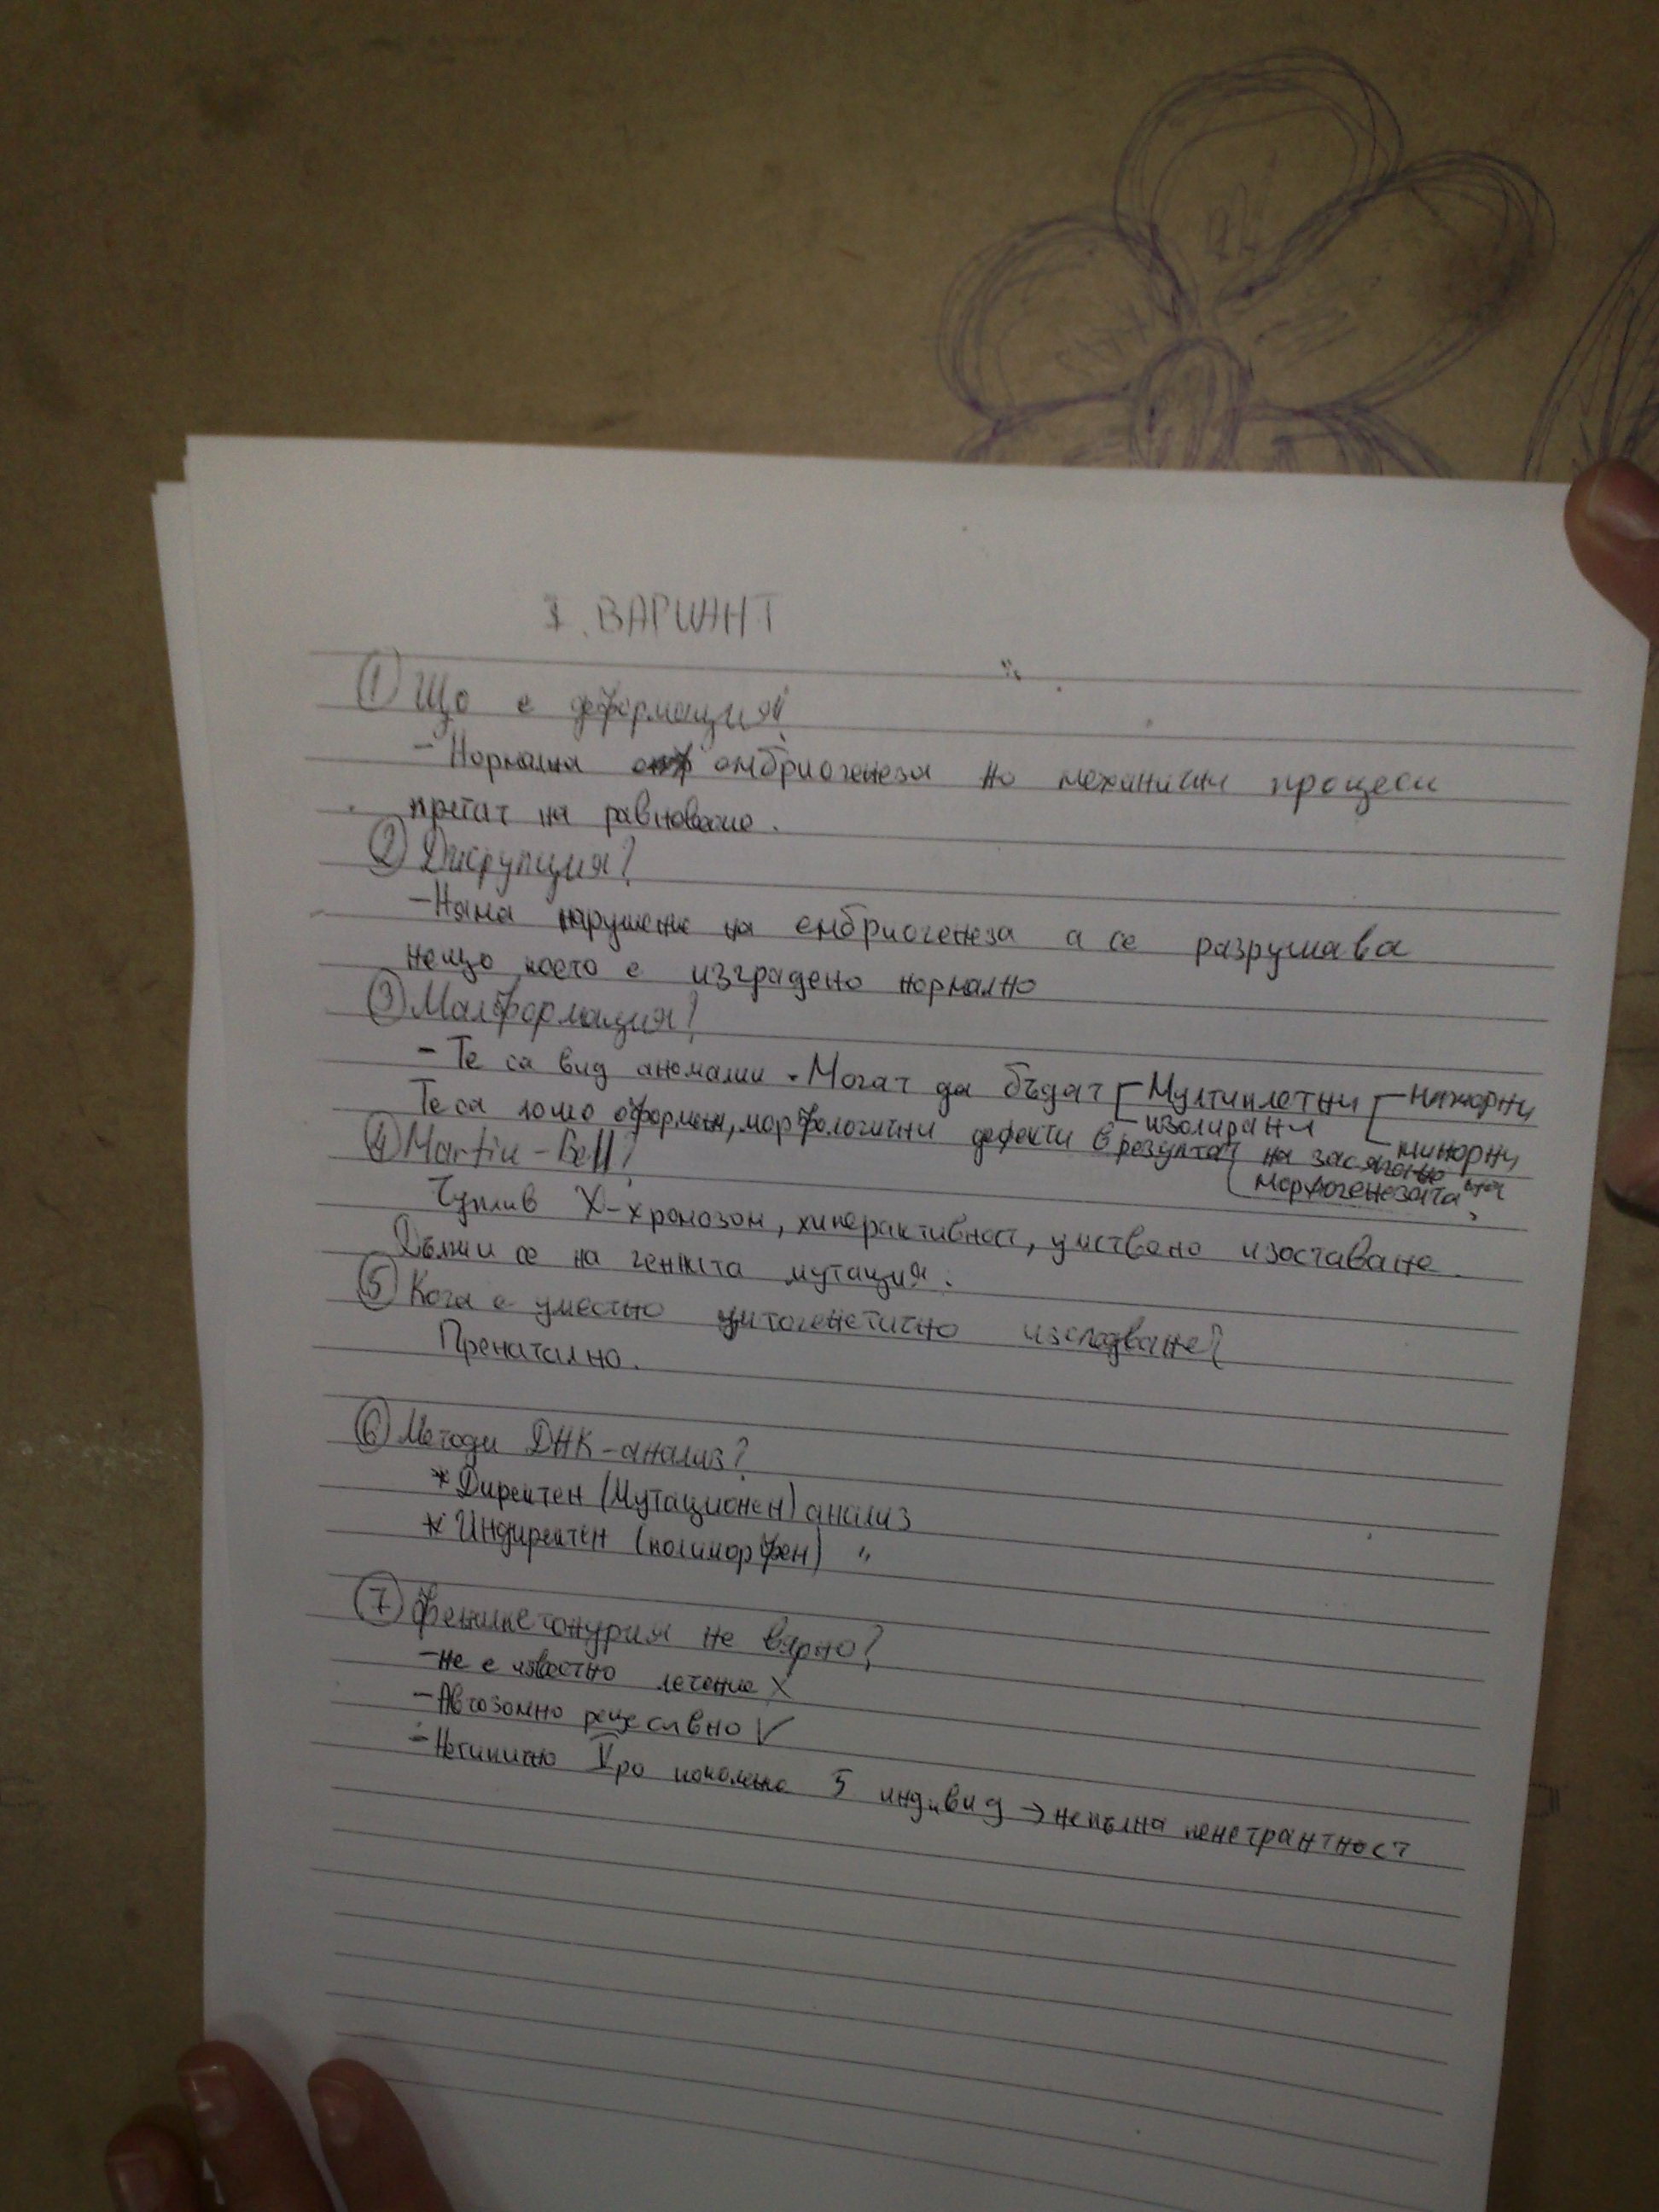 I. ВАРИАНТ
① Що е деформация?
- Нормална ембриогенеза но механични процеси
пречат на равновесие.
② Дисрупция?
- Няма нарушение на ембриогенеза а се разрушава
нещо което е изградено нормално
③ Малформация?
- Те са вид аномалии. Могат да бъдат Мултиплетни мажорни
изолирани минорни
Те са лошо оформени, морфологични дефекти в резултат на засягане
морфогенезата
④ Martin-Bell?
Чуплив X-хромозом, хиперактивност, умствено изоставане.
Дължи се на генната мутация.
⑤ Кога е уместно цитогенетично изследване?
Пренатално.
⑥ Методи ДНК-анализ?
* Директен (Мутационен) анализ
* Индиректен (полиморфен) "
⑦ Фенилкетонурия не вярно?
- не е известно лечение X
- Автозомно рецесивно V
- Нетипично V ро поколение 5 индивид → непълна пенетрантност